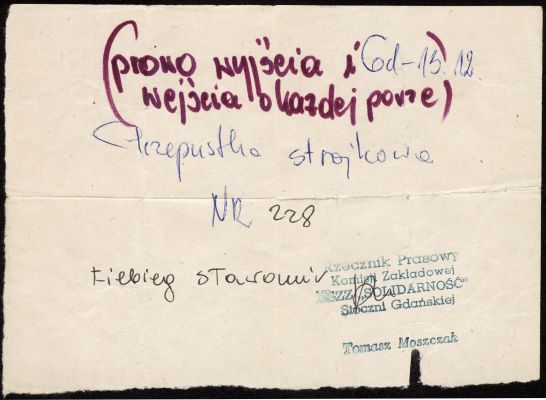 (prawo wyjścia i
wejścia o każdej porze)
Gd-15.12.
Przepustka strajkowa
NR 228
Łiebieg Sławomir
Rzecznik Prasowy
Komisji Zakładowej
NSZZ „SOLIDARNOŚĆ”
Stoczni Gdańskiej
Tomasz Moszczak